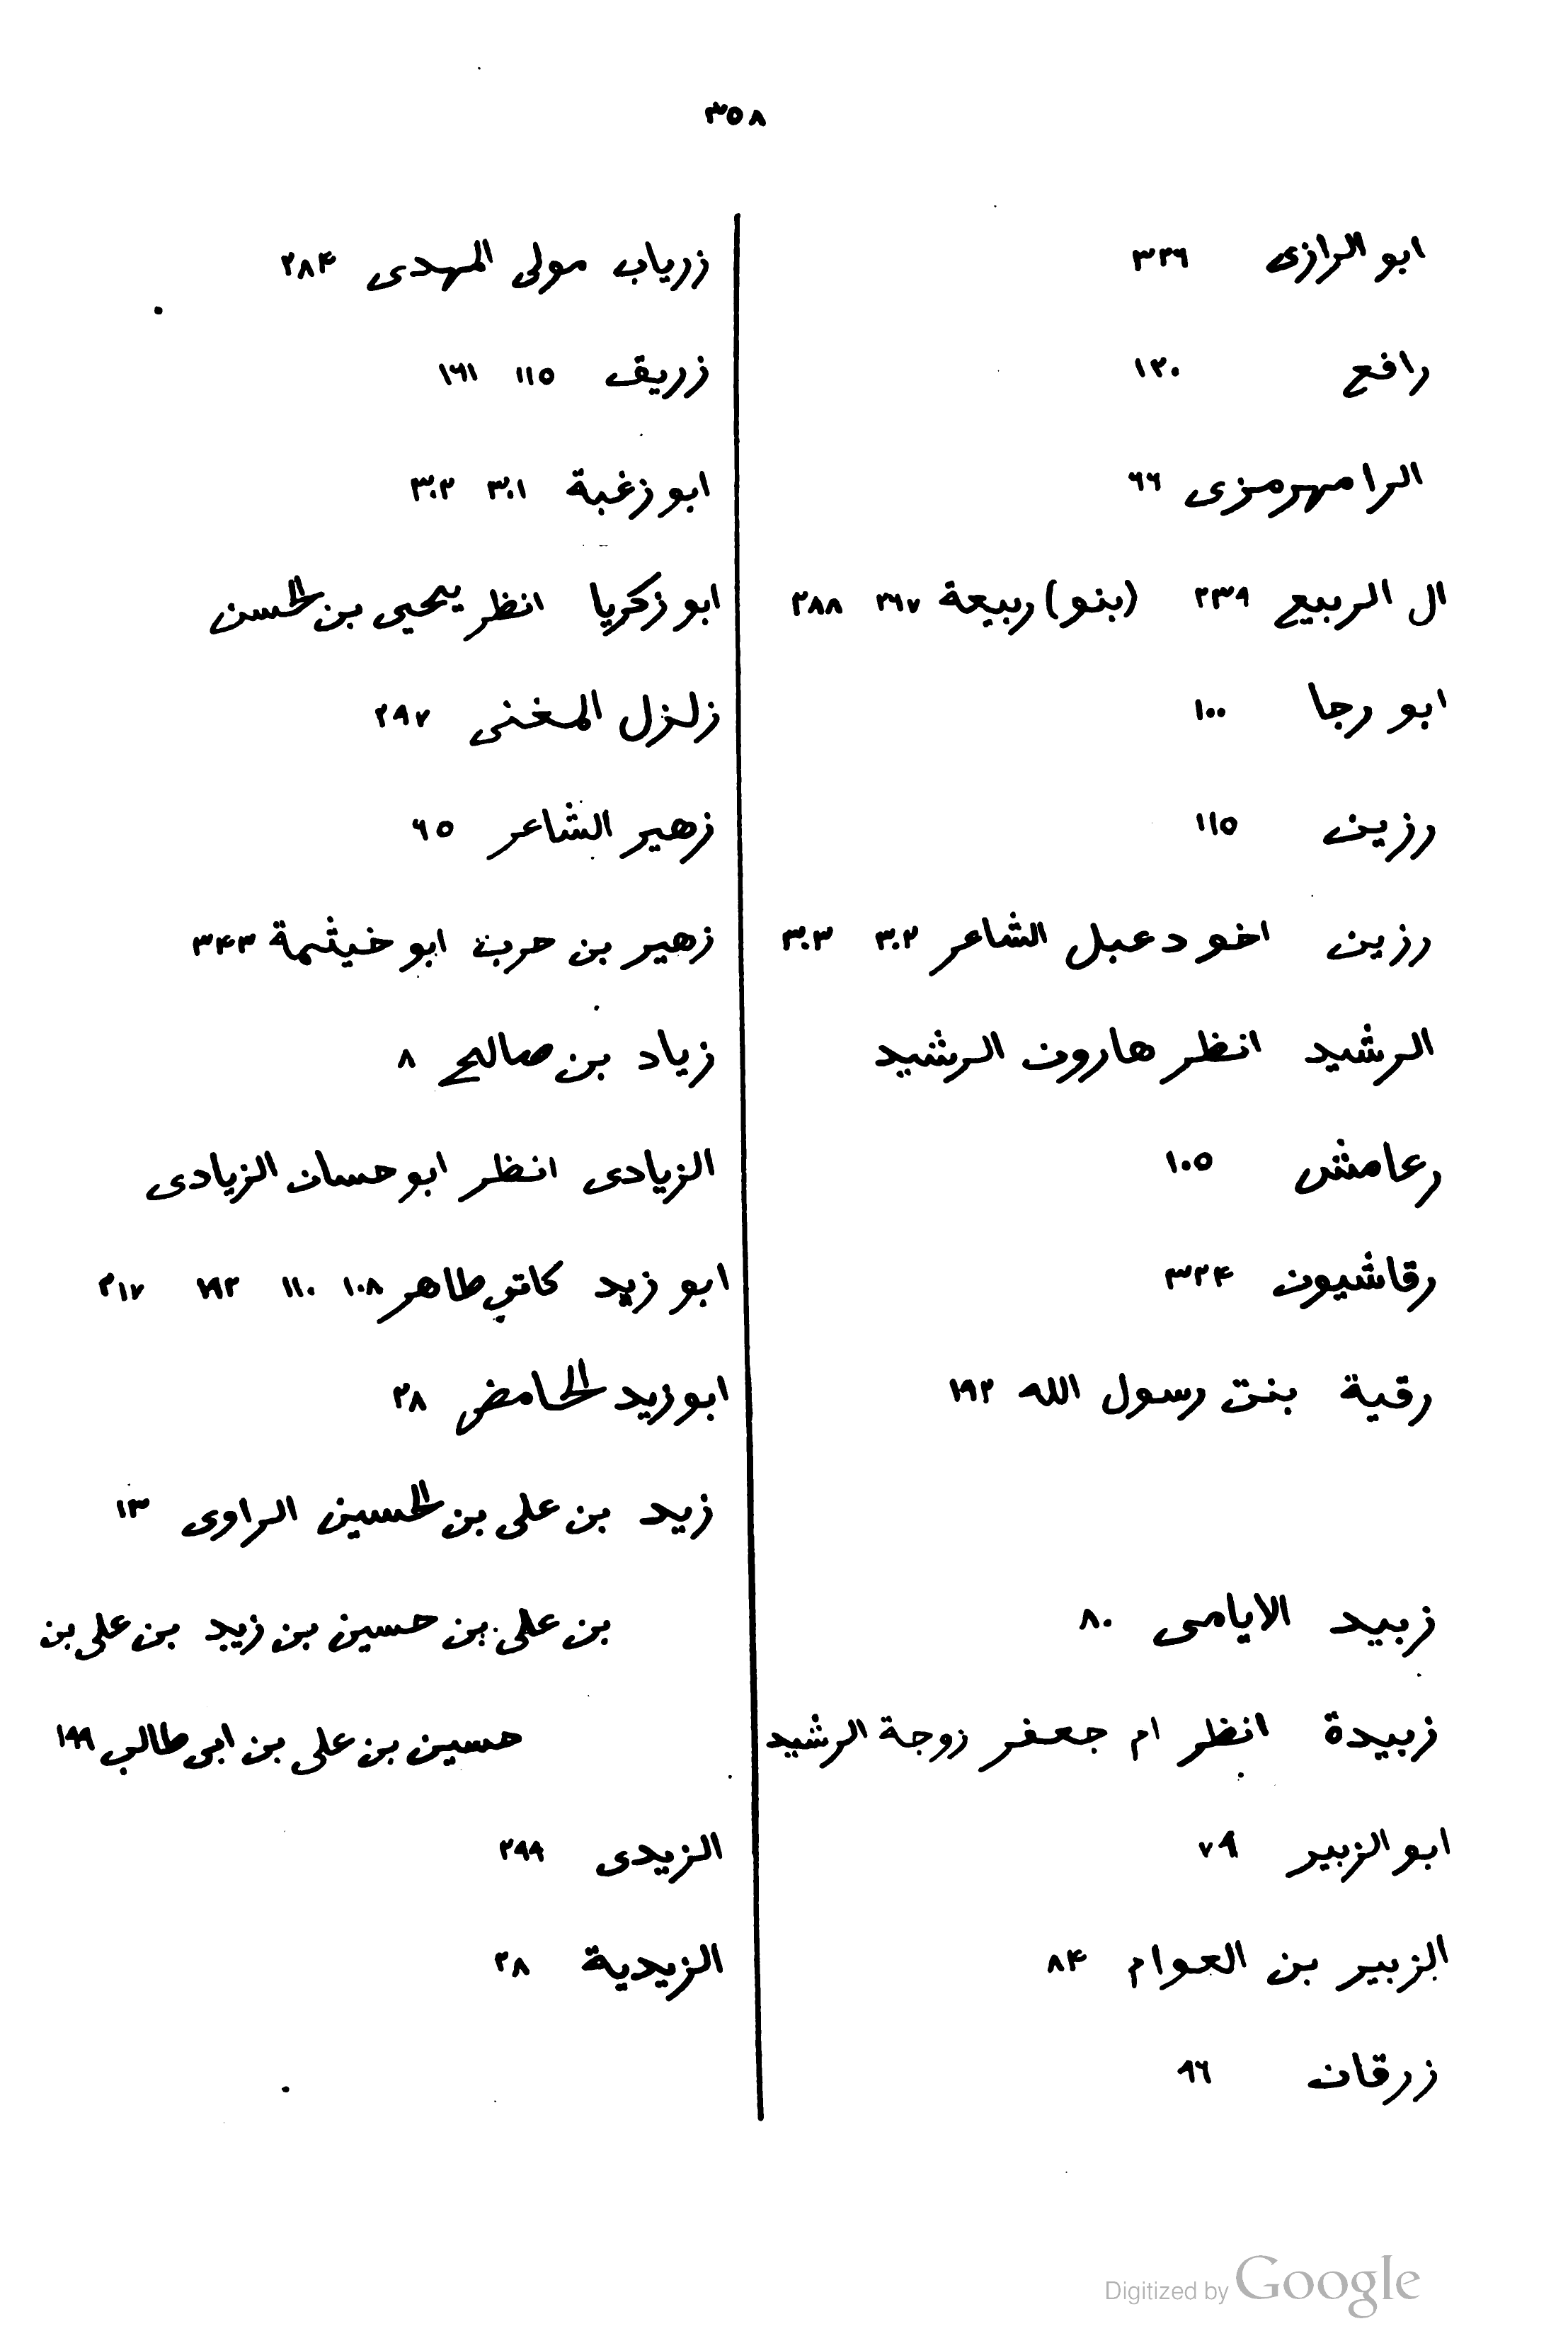 ٣٥٨
ابو الرازى ٣٢٦
رافع ١٢٠
الرامهرمزى ٦٦
ال الربيع ٢٣٩ (بنو) ربيعة ٢٦٧ ٢٨٨
ابو رجا ١٠٠
رزين ١١٥
رزين اخو دعبل الشاعر ٣٠٢ ٣٠٣
الرشيد انظر هارون الرشيد
رعامش ١٠٥
رقاشيون ٣٢٤
رقية بنت رسول الله ١٩٢
زبيد الايامى ٨٠
زبيدة انظر ام جعفر زوجة الرشيد
ابو الزبير ٧٩
الزبير بن العوام ٨٤
زرقان ٩٦
زرياب مولى المهدى ٢٨٤
زريق ١١٥ ١٦١
ابو زغبة ٣٠١ ٣٠٢
ابو زكريا انظر يحيى بن الحسن
زلزل المغنى ٢٩٧
زهير الشاعر ٦٥
زهير بن حرب ابو خيثمة ٣٤٣
زياد بن صالح ٨
الزيادى انظر ابو حسان الزيادى
ابو زيد كاتب طاهر ١٠٨ ١١٠ ١٩٢ ٢١٧
ابو زيد الحامض ٢٨
زيد بن على بن الحسين الراوى ١٣
بن على بن حسين بن زيد بن على بن
حسين بن على بن ابى طالب ١٩٩
الزيدى ٢٩٩
الزيدية ٢٨
Digitized by Google